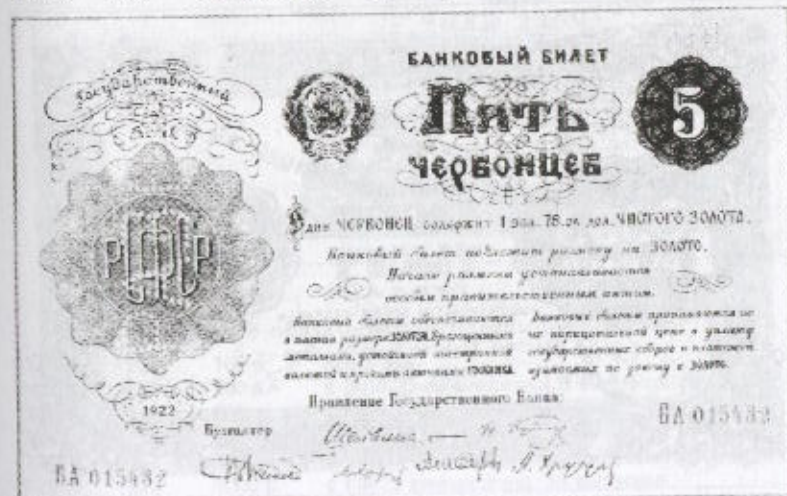 Государственный
БАНКОВЫЙ БИЛЕТ
Пять
ЧЕРВОНЦЕВ
5
РСФСР
Один ЧЕРВОНЕЦ содержит 1 зол. 78,24 дол. ЧИСТОГО ЗОЛОТА.
Банковый билет подлежит размену на ЗОЛОТО.
Начало размена устанавливается
особым правительственным актом.
Банковые билеты обеспечиваются
в полном размере ЗОЛОТОМ, драгоценными
металлами, устойчивой иностранной
валютой и прочими активами ГОСБАНКА.
Банковые билеты принимаются по
их нарицательной цене в уплату
государственных сборов и платежей
взимаемых по закону в золоте.
Правление Государственного Банка:
1922
Бухгалтер
БА 015432
БА 015432